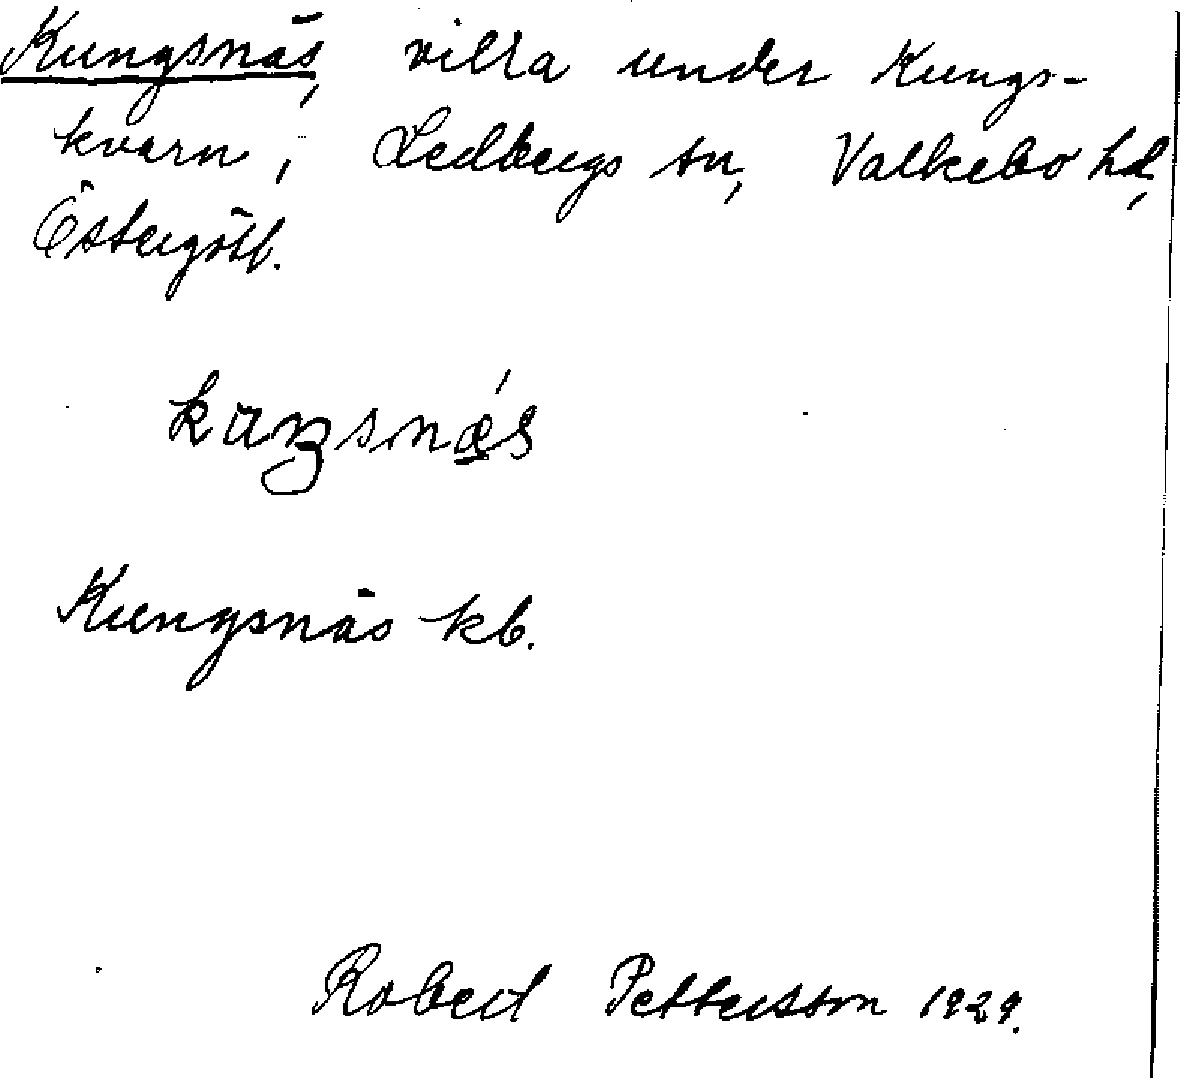 Kungsnäs, villa under Kungs-
kvarn, Ledbergs sn, Valkebo hd,
Östergötl.
Kungsnäs kb.
Robert Pettersson 1929.